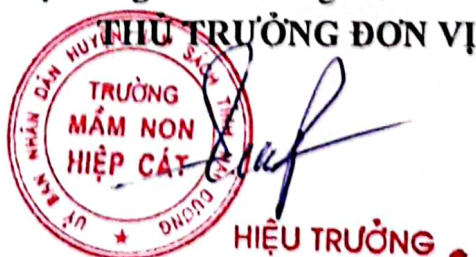 THỦ TRƯỞNG ĐƠN VỊ
UỶ BAN NHÂN DÂN HUYỆN SÁCH TỈNH DƯƠNG
TRƯỜNG
MẦM NON
HIỆP CÁT
HIỆU TRƯỞNG